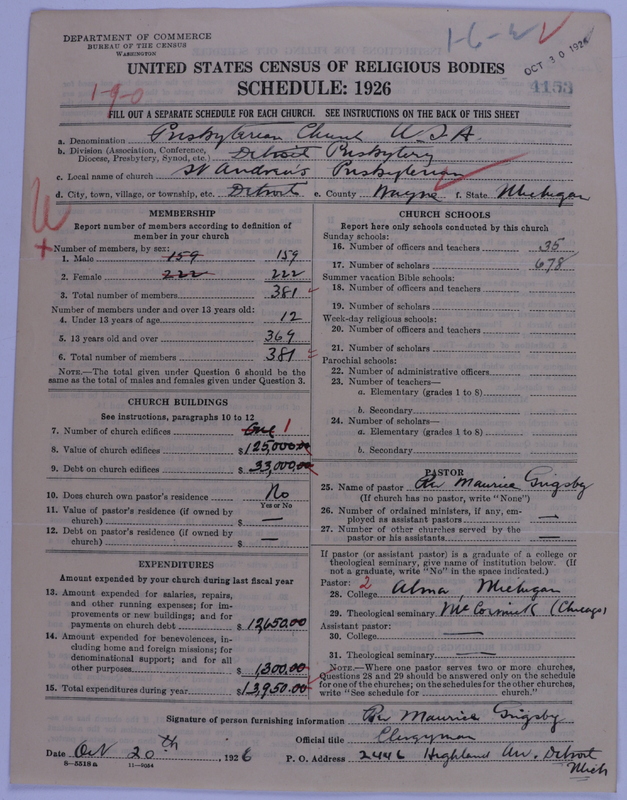 DEPARTMENT OF COMMERCE
BUREAU OF THE CENSUS
WASHINGTON
1-6-2
OCT 30 1926
4153
UNITED STATES CENSUS OF RELIGIOUS BODIES
SCHEDULE: 1926
1-9-0
FILL OUT A SEPARATE SCHEDULE FOR EACH CHURCH. SEE INSTRUCTIONS ON THE BACK OF THIS SHEET
a. Denomination Presbyterian Church U.S.A.
b. Division (Association, Conference, Diocese, Presbytery, Synod, etc.) Detroit Presbytery
c. Local name of church St Andrew's Presbyterian
d. City, town, village, or township, etc. Detroit e. County Wayne f. State Michigan
MEMBERSHIP
Report number of members according to definition of
member in your church
Number of members, by sex:
1. Male 159 159
2. Female 222 222
3. Total number of members 381
Number of members under and over 13 years old:
4. Under 13 years of age 12
5. 13 years old and over 369
6. Total number of members 381
NOTE.—The total given under Question 6 should be
same as the total of males and females given under Question 3.
CHURCH BUILDINGS
See instructions, paragraphs 10 to 12
7. Number of church edifices One 1
8. Value of church edifices $125,000.00
9. Debt on church edifices $33,000.00
10. Does church own pastor's residence No
Yes or No
11. Value of pastor's residence (if owned by
church) $ —
12. Debt on pastor's residence (if owned by
church) $ —
EXPENDITURES
Amount expended by your church during last fiscal year
13. Amount expended for salaries, repairs,
and other running expenses; for im-
provements or new buildings; and for
payments on church debt $12,650.00
14. Amount expended for benevolences, in-
cluding home and foreign missions; for
denominational support; and for all
other purposes $1,300.00
15. Total expenditures during year $13,950.00
CHURCH SCHOOLS
Report here only schools conducted by this church
Sunday schools:
16. Number of officers and teachers 35
17. Number of scholars 678
Summer vacation Bible schools:
18. Number of officers and teachers
19. Number of scholars
Week-day religious schools:
20. Number of officers and teachers
21. Number of scholars
Parochial schools:
22. Number of administrative officers
23. Number of teachers—
a. Elementary (grades 1 to 8)
b. Secondary
24. Number of scholars—
a. Elementary (grades 1 to 8)
b. Secondary
PASTOR
25. Name of pastor Rev Maurice Grigsby
(If church has no pastor, write "None")
26. Number of ordained ministers, if any, em-
ployed as assistant pastors —
27. Number of other churches served by the
pastor or his assistants —
If pastor (or assistant pastor) is a graduate of a college or
theological seminary, give name of institution below. (If
not a graduate, write "No" in the space indicated.)
Pastor: 2
28. College Alma, Michigan
29. Theological seminary McCormick (Chicago)
Assistant pastor:
30. College —
31. Theological seminary —
NOTE.—Where one pastor serves two or more churches,
Questions 28 and 29 should be answered only on the schedule
for one of the churches; on the schedules for the other churches,
write "See schedule for church."
Signature of person furnishing information Rev Maurice Grigsby
Official title Clergyman
Date Oct 20th, 1926 P. O. Address 2446 Highland Av. Detroit
Mich
8—5518a 11—9054